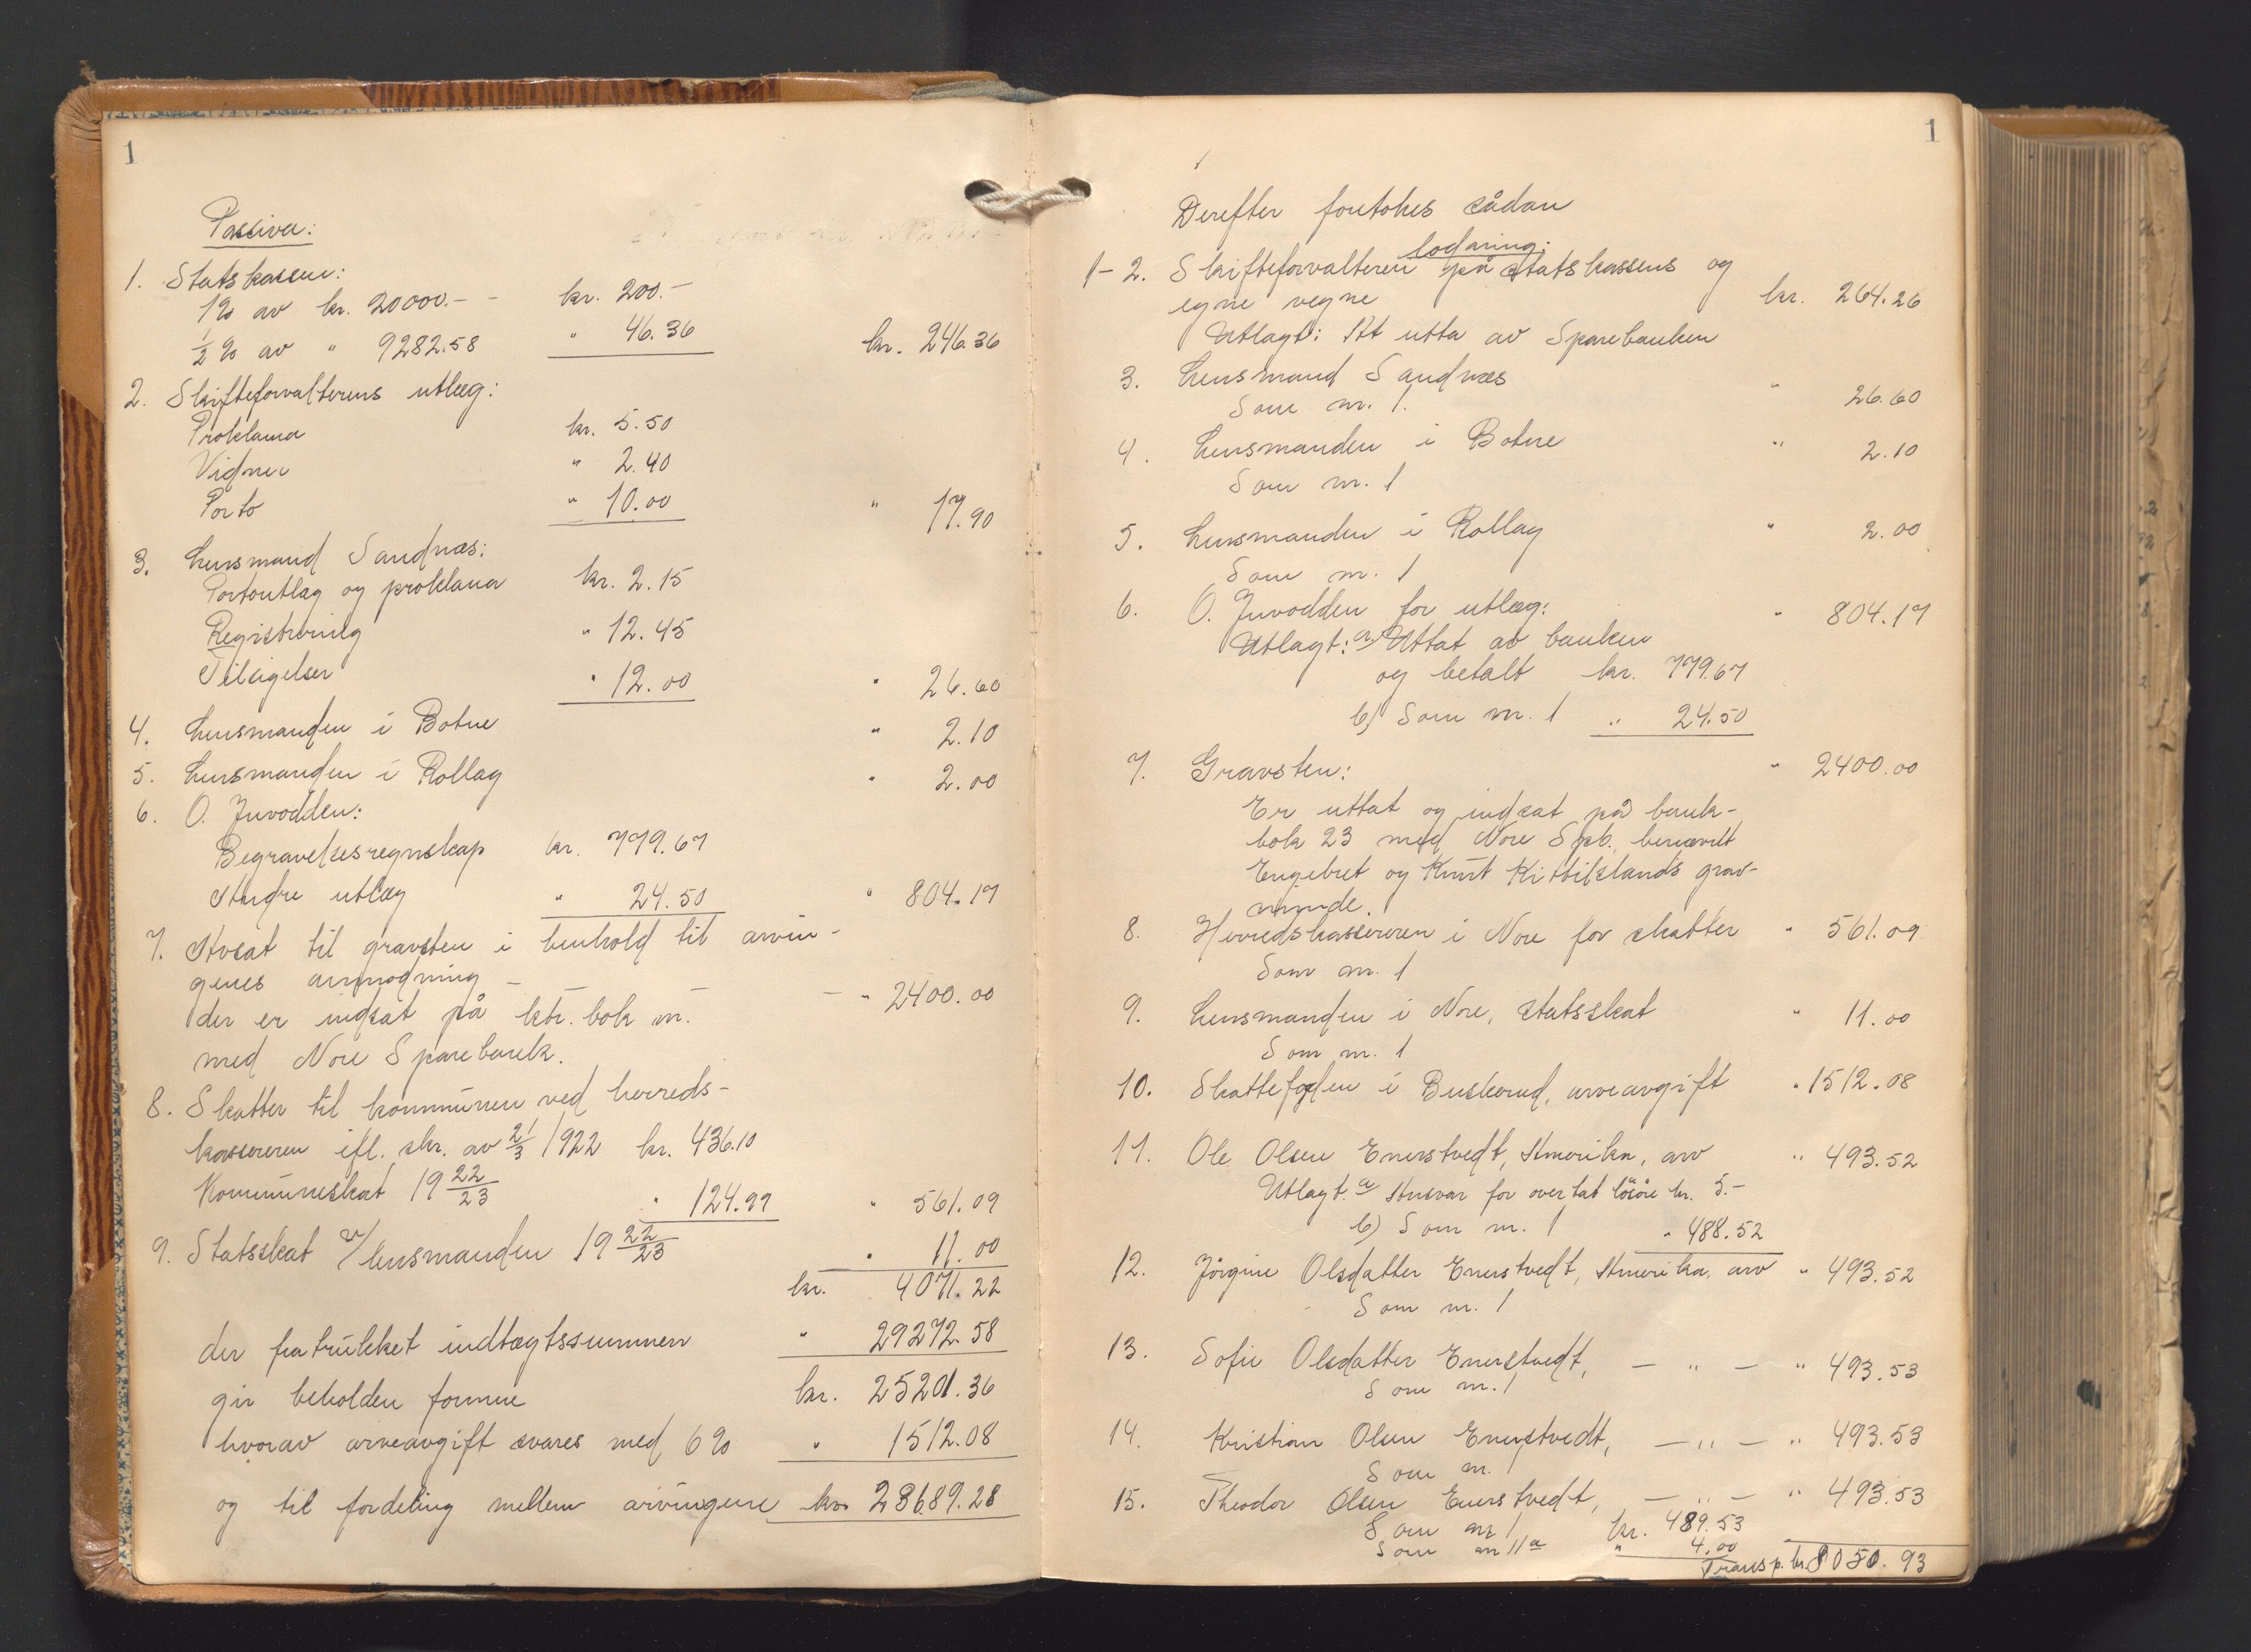 1
Passiva:
1. Statskassen:
1% av kr. 20000.- - kr. 200.-
1/2 % av " 9282.58 " 46.36 kr. 246.36
2. Skifteforvalterens utlæg:
Proklama kr. 5.50
Vidner " 2.40
Porto " 10.00 " 17.90
3. Lensmand Sandnæs:
Portoutlag og proklama kr. 2.15
Registrering " 12.45
Tilsigelser " 12.00 " 26.60
4. Lensmanden i Botne " 2.10
5. Lensmanden i Rollag " 2.00
6. O. Juvodden:
Begravelsesregnskap kr. 779.67
Andre utlæg " 24.50 " 804.17
7. Avsat til gravsten i henhold til arvin-
genes anmodning — — — — " 2400.00
der er indsat på ktr. bok nr.
med Nore Sparebank.
8. Skatter til kommunen ved herreds-
kassereren ifl. skr. av 21/3 1922 kr. 436.10
Kommuneskat 19 22/23 " 124.99 " 561.09
9. Statsskat v/ lensmanden 19 22/23 " 11.00
kr. 4071.22
der fratrukket indtægtssummen " 29272.58
gir beholden formue kr. 25201.36
hvorav arveavgift svares med 6% " 1512.08
og til fordeling mellem arvingene kr. 23689.28
1
Derefter foretokes sådan
lodning:
1-2. Skifteforvalteren på statskassens og
egne vegne kr. 264.26
Utlagt: At utta av Sparebanken
3. Lensmand Sandnæs " 26.60
Som nr. 1.
4. Lensmanden i Botne " 2.10
Som nr. 1
5. Lensmanden i Rollag " 2.00
Som nr. 1
6. O. Juvodden for utlæg: " 804.17
Utlagt: a) Uttat av banken
og betalt kr. 779.67
b) Som nr. 1 " 24.50
7. Gravsten: " 2400.00
Er uttat og indsat på bank-
bok 23 med Nore Spb. benævnt
Engebret og Knut Kittilslands grav-
minde.
8. Herredskassereren i Nore for skatter " 561.09
Som nr. 1
9. Lensmanden i Nore, statsskat " 11.00
Som nr. 1
10. Skattefogden i Buskerud, arveavgift " 1512.08
11. Ole Olsen Enerstvedt, Amerika, arv " 493.52
Utlagt: a) Ansvar for overtat løsøre kr. 5.-
b) Som nr. 1 " 488.52
12. Jørgine Olsdatter Enerstvedt, Amerika, arv " 493.52
Som nr. 1
13. Sofie Olsdatter Enerstvedt, — " — " 493.53
Som nr. 1
14. Kristian Olsen Enerstvedt, — " — " 493.53
Som nr. 1
15. Theodor Olsen Enerstvedt, — " — " 493.53
Som nr 1 kr. 489.53
Som nr 11 a " 4.00
Transp. kr. 8050.93